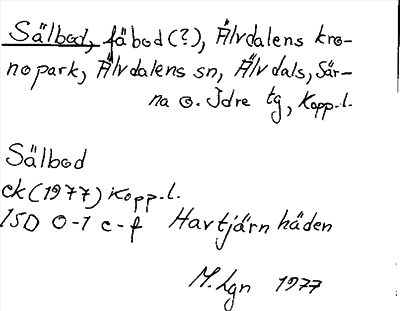 Sälbod, fäbod(?), Älvdalens kro-
nopark, Älvdalens sn, Älvdals, Sär-
na o. Idre tg, Kopp.l.
Sälbod
ek(1977) Kopp.l.
15D 0-1 c-f Havtjärnhäden
M.Lgn 1977